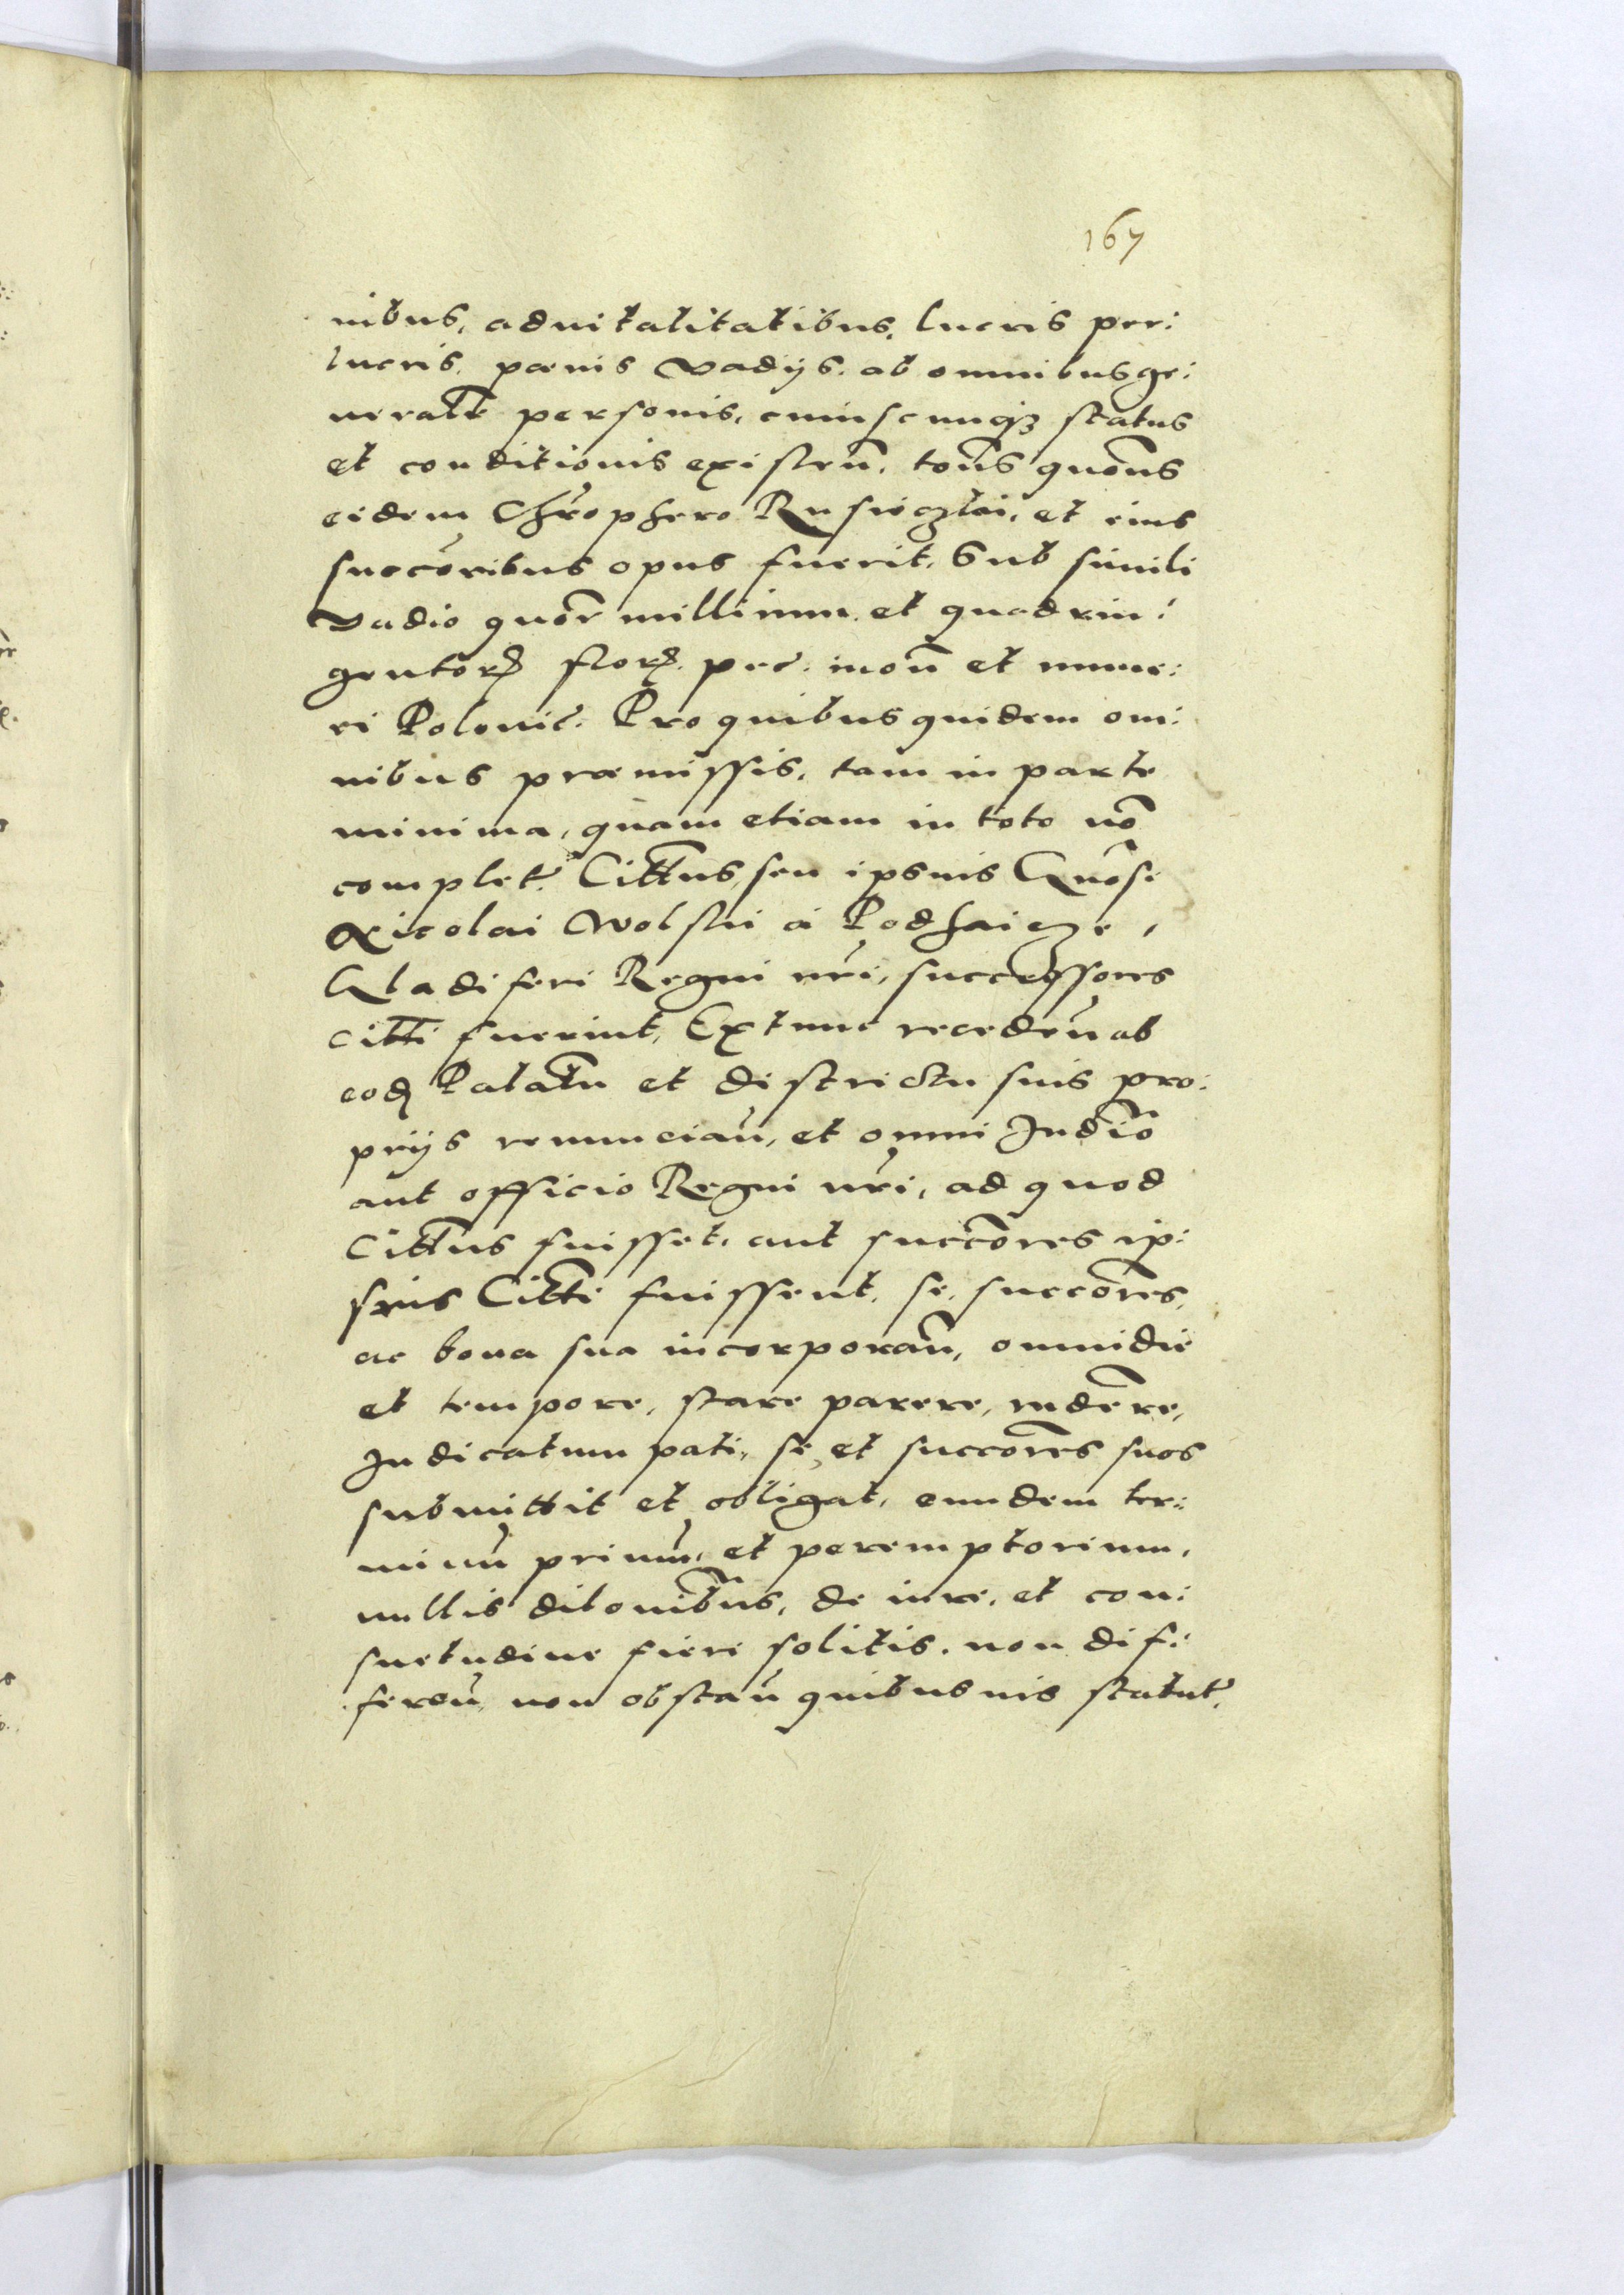 167
nibus, aduitalitatibus, lucris per:
lucris, pœnis vadijs. ab omnibus ge:
neralr̃ personis, cuiuscunq́ꝫ status
et conditionis existeñ. toties quoties
eidem Chr̃ophero Rusieczki, et eius
succõribus opus fuerit. Sub simili
vadio quor̃ millium. et quadrin:
gentorꝝ florꝝ. pec̃. moñ et nume:
ri Polonic̃. Pro quibus quidem om:
nibus præmissis, tam in parte
minima, quam etiam in toto nõ
complet̃. Citt̃us, seu ipsius Gnõsi
Nicolai Wolski à Podhaicze,
Gladiferi Regni nr̃i, successores
citt̃i fuerint, Extunc recedeñ ab
eod̃ Palatñ et districtu suis pro:
prijs renunciañ, et omni Iudiõ
aut officio Regni nr̃i, ad quod
Citt̃us fuisset, aut succõres ip:
sius Citt̃i fuissent, se, succõres,
ac bona sua incorporañ, omni die
et tempore, stare parere, rñdere,
Iudicatum pati, se et succõres suos
submittit et obligat, eundem ter:
minũ primũ, et peremptorium,
nullis dilõnibus, de iure, et con:
suetudine fieri solitis. non dif:
fereñ, non obstañ quibusuis statut̃.